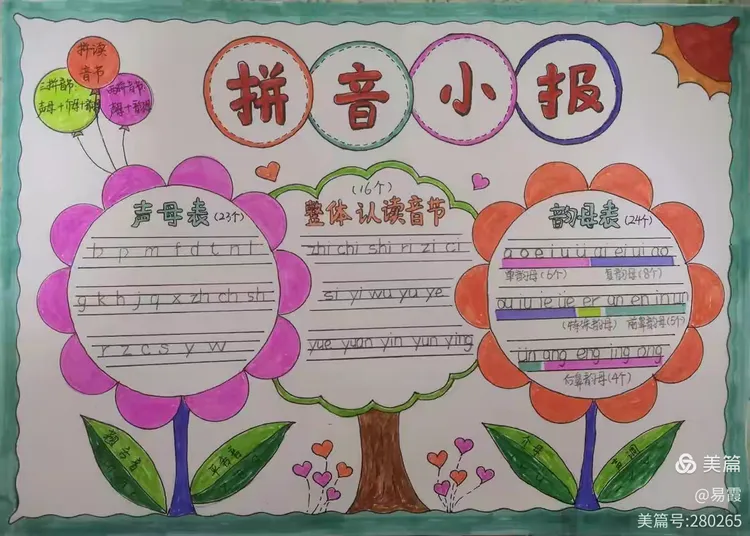 拼音小报
拼读
音节
三拼音节:
声母+介母+韵母
两拼音节:
声母+韵母
声母表(23个)
b p m f d t n l
g k h j q x zh ch sh
r z c s y w
(16个)
整体认读音节
zhi chi shi ri zi ci
si yi wu yu ye
yue yuan yin yun ying
韵母表(24个)
a o e i u ü ai ei ui ao
单韵母(6个) 复韵母(8个)
ou iu ie üe er an en in un
(特殊韵母) 前鼻韵母(5个)
ün ang eng ing ong
后鼻韵母(4个)
翘舌音
平舌音
介母
声调
美篇
@易霞
美篇号:280265